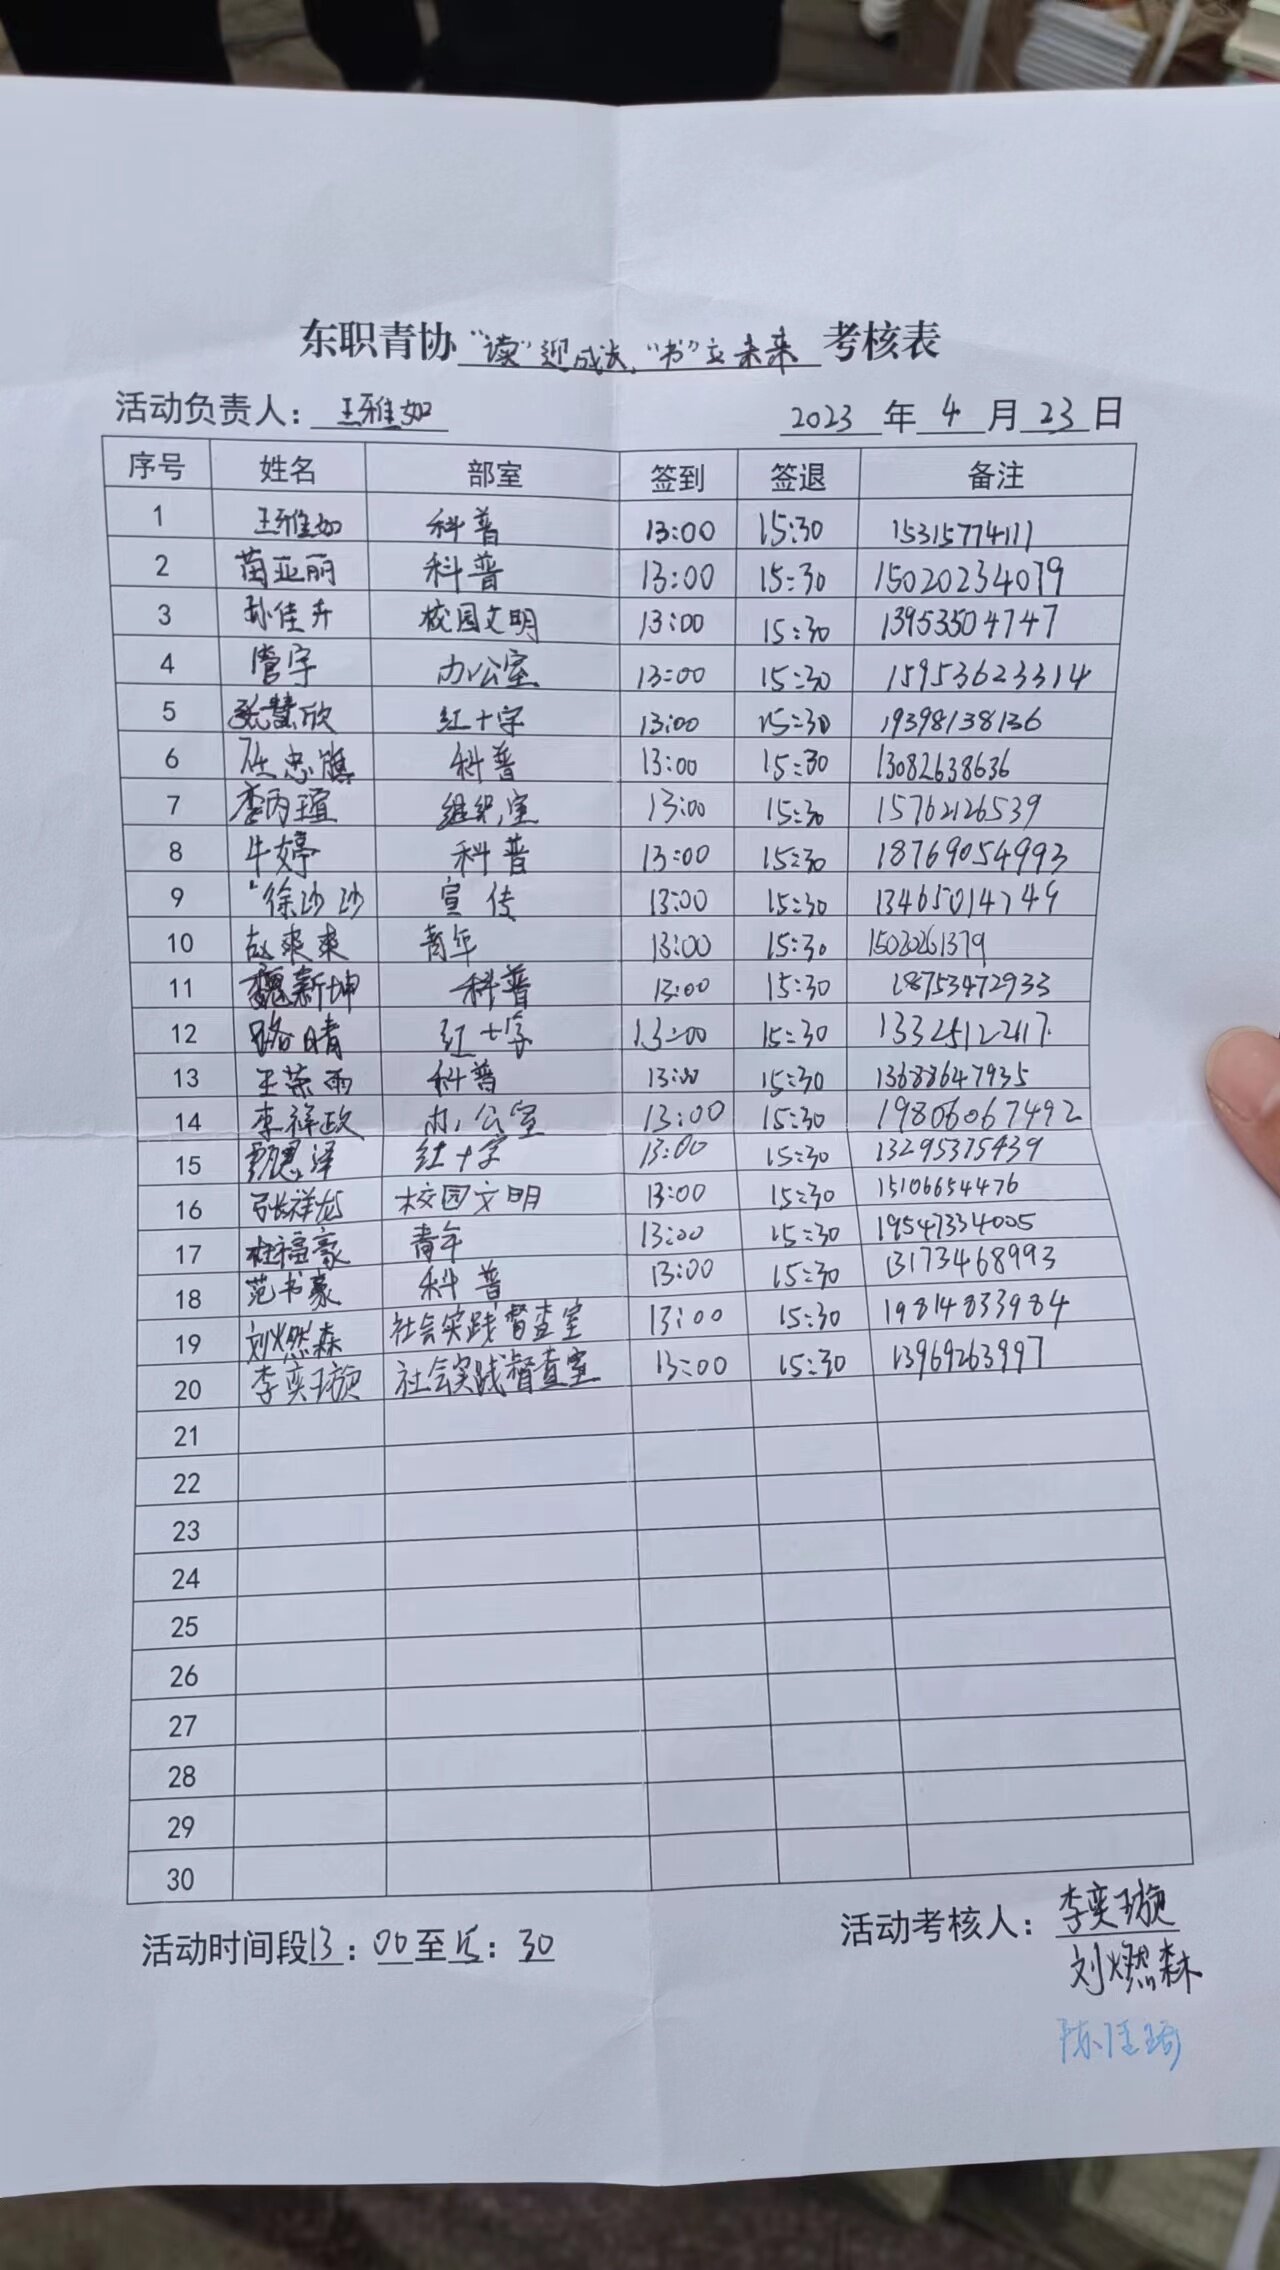 东职青协“读”迎成长，“书”立未来 考核表
活动负责人：王雅如 2023年4月23日
序号 姓名 部室 签到 签退 备注
1 王雅如 科普 13:00 15:30 15315774111
2 苗亚丽 科普 13:00 15:30 15020234079
3 孙佳卉 校园文明 13:00 15:30 13953504747
4 管宇 办公室 13:00 15:30 15953623314
5 张慧欣 红十字 13:00 15:30 19398138136
6 任忠旗 科普 13:00 15:30 13082638636
7 李丙瑄 组织室 13:00 15:30 15762126539
8 牛婷 科普 13:00 15:30 18769054993
9 徐沙沙 宣传 13:00 15:30 13465014749
10 赵爽爽 青年 13:00 15:30
11 魏新坤 科普 13:00 15:30 18753472933
12 路晴 红十字 13:00 15:30 13325122417
13 王荣雨 科普 13:00 15:30 13688647935
14 李祥政 办公室 13:00 15:30 19806067492
15 甄思泽 红十字 13:00 15:30 13295375439
16 张祥龙 校园文明 13:00 15:30 15106654476
17 桂福豪 青年 13:00 15:30 19547334005
18 范书豪 科普 13:00 15:30 13173468993
19 刘燃森 社会实践督查室 13:00 15:30 19814833984
20 李奕璇 社会实践督查室 13:00 15:30 13969263997
21
22
23
24
25
26
27
28
29
30
活动时间段13：00至15：30 活动考核人：李奕璇
刘燃森